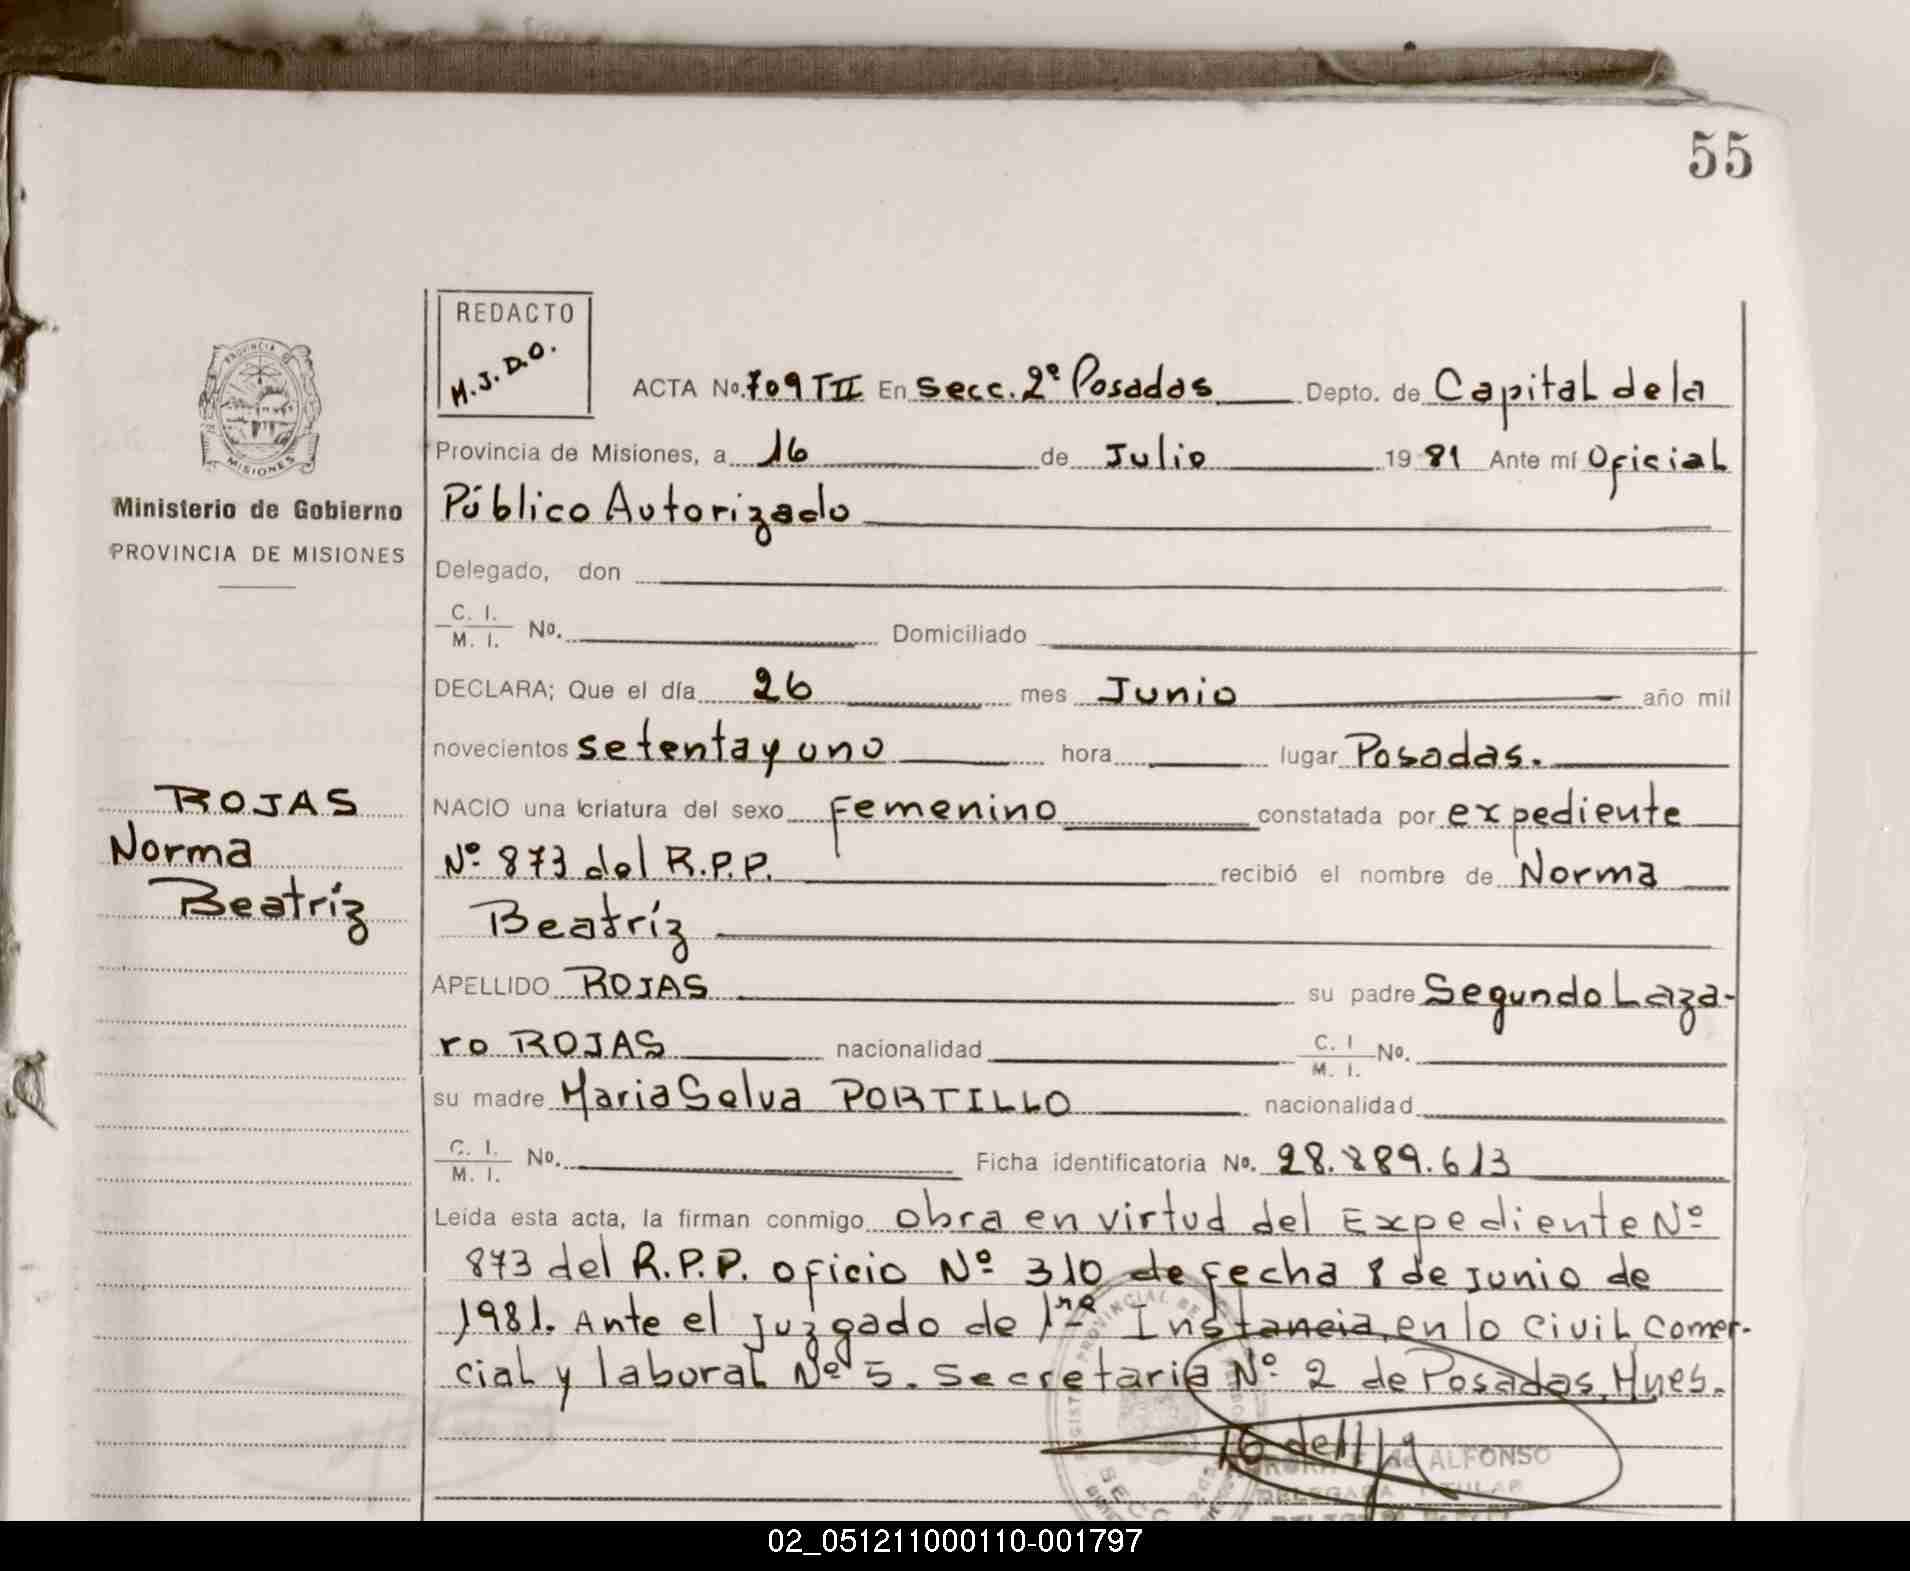 55
REDACTO
M.J.D.O.
ACTA No. 709 TII En Secc. 2º Posadas Depto. de Capital de la
Provincia de Misiones, a 16 de Julio 19 81 Ante mí Oficial
Público Autorizado
Delegado, don
C. I.
M. I. No. Domiciliado
DECLARA; Que el día 26 mes Junio año mil
novecientos setenta y uno hora lugar Posadas.
NACIO una criatura del sexo Femenino constatada por expediente
Nº 873 del R.P.P. recibió el nombre de Norma
Beatríz
APELLIDO ROJAS su padre Segundo Laza-
ro ROJAS nacionalidad C. I
M. I. No.
su madre Maria Selva PORTILLO nacionalidad
C. I.
M. I. No. Ficha identificatoria No. 28.889.613
Leída esta acta, la firman conmigo obra en virtud del Expediente Nº
873 del R.P.P. oficio Nº 310 de fecha 8 de Junio de
1981. Ante el juzgado de 1ra Instancia en lo civil comer-
cial y laboral Nº 5. Secretaria Nº 2 de Posadas, Mnes.
ALFONSO
DELEGADA TITULAR
PROVINCIA
MISIONES
Ministerio de Gobierno
PROVINCIA DE MISIONES
ROJAS
Norma
Beatríz
02_051211000110-001797